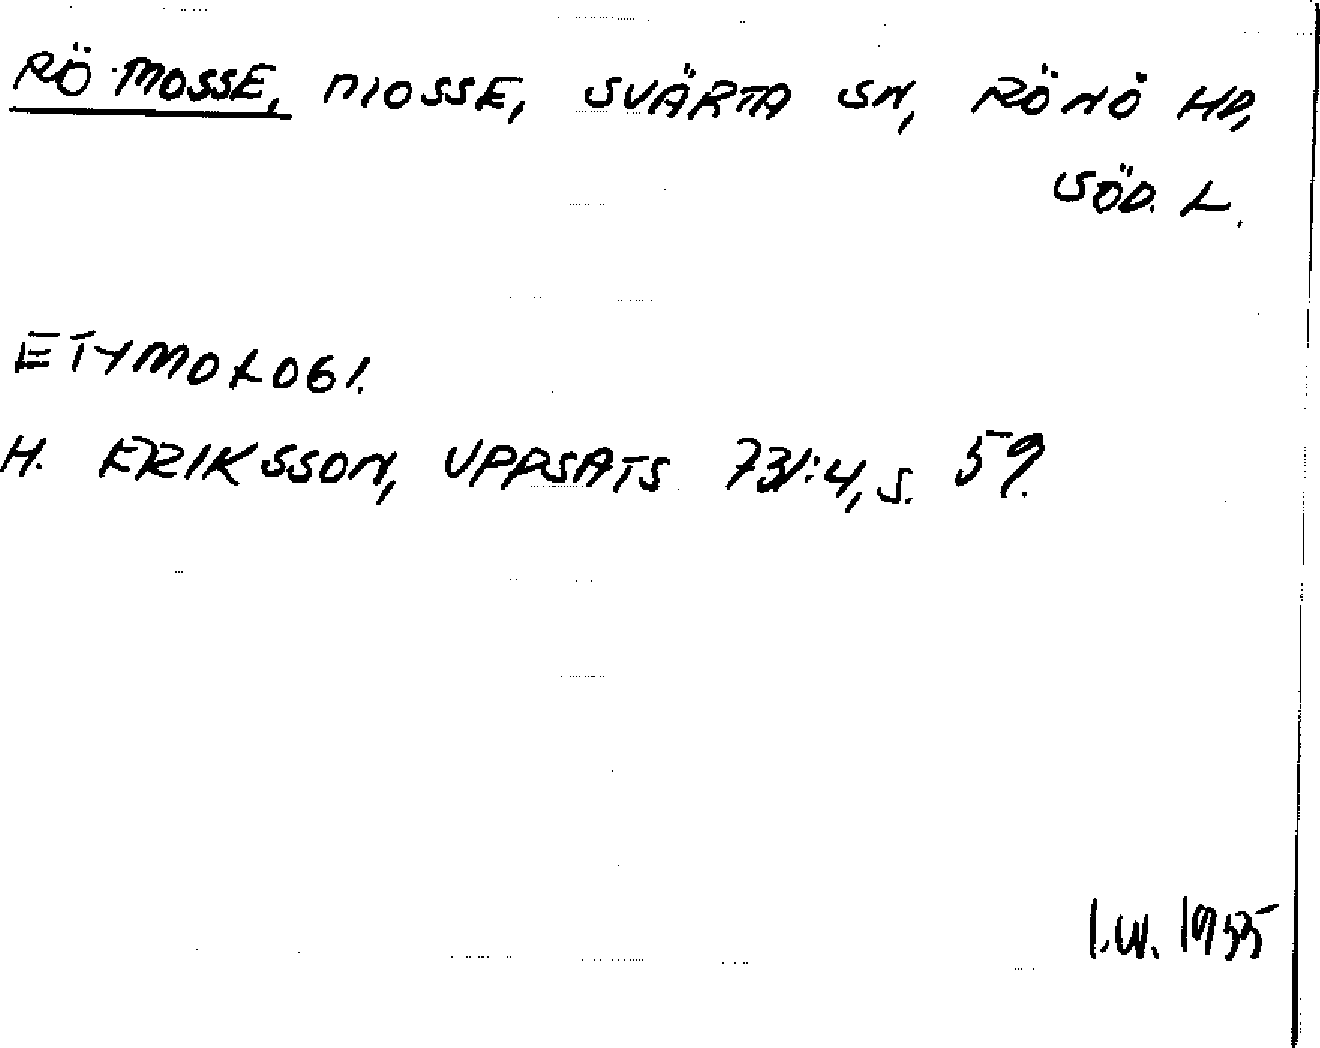 RÖ MOSSE, MOSSE, SVÄRTA SN, RÖNÖ HD,
SÖD. L.
ETYMOLOGI.
H. ERIKSSON, UPPSATS 731:4, S. 59.
I.W. 1955